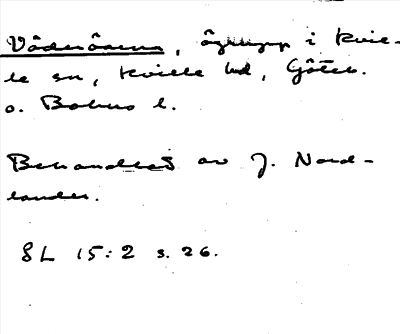 Väderöarna, ögrupp i Kvil-
le sn, Kville hd, Göteb.
o. Bohus l.
Behandlas av J. Nord-
lander.
SL 15:2 s. 26.